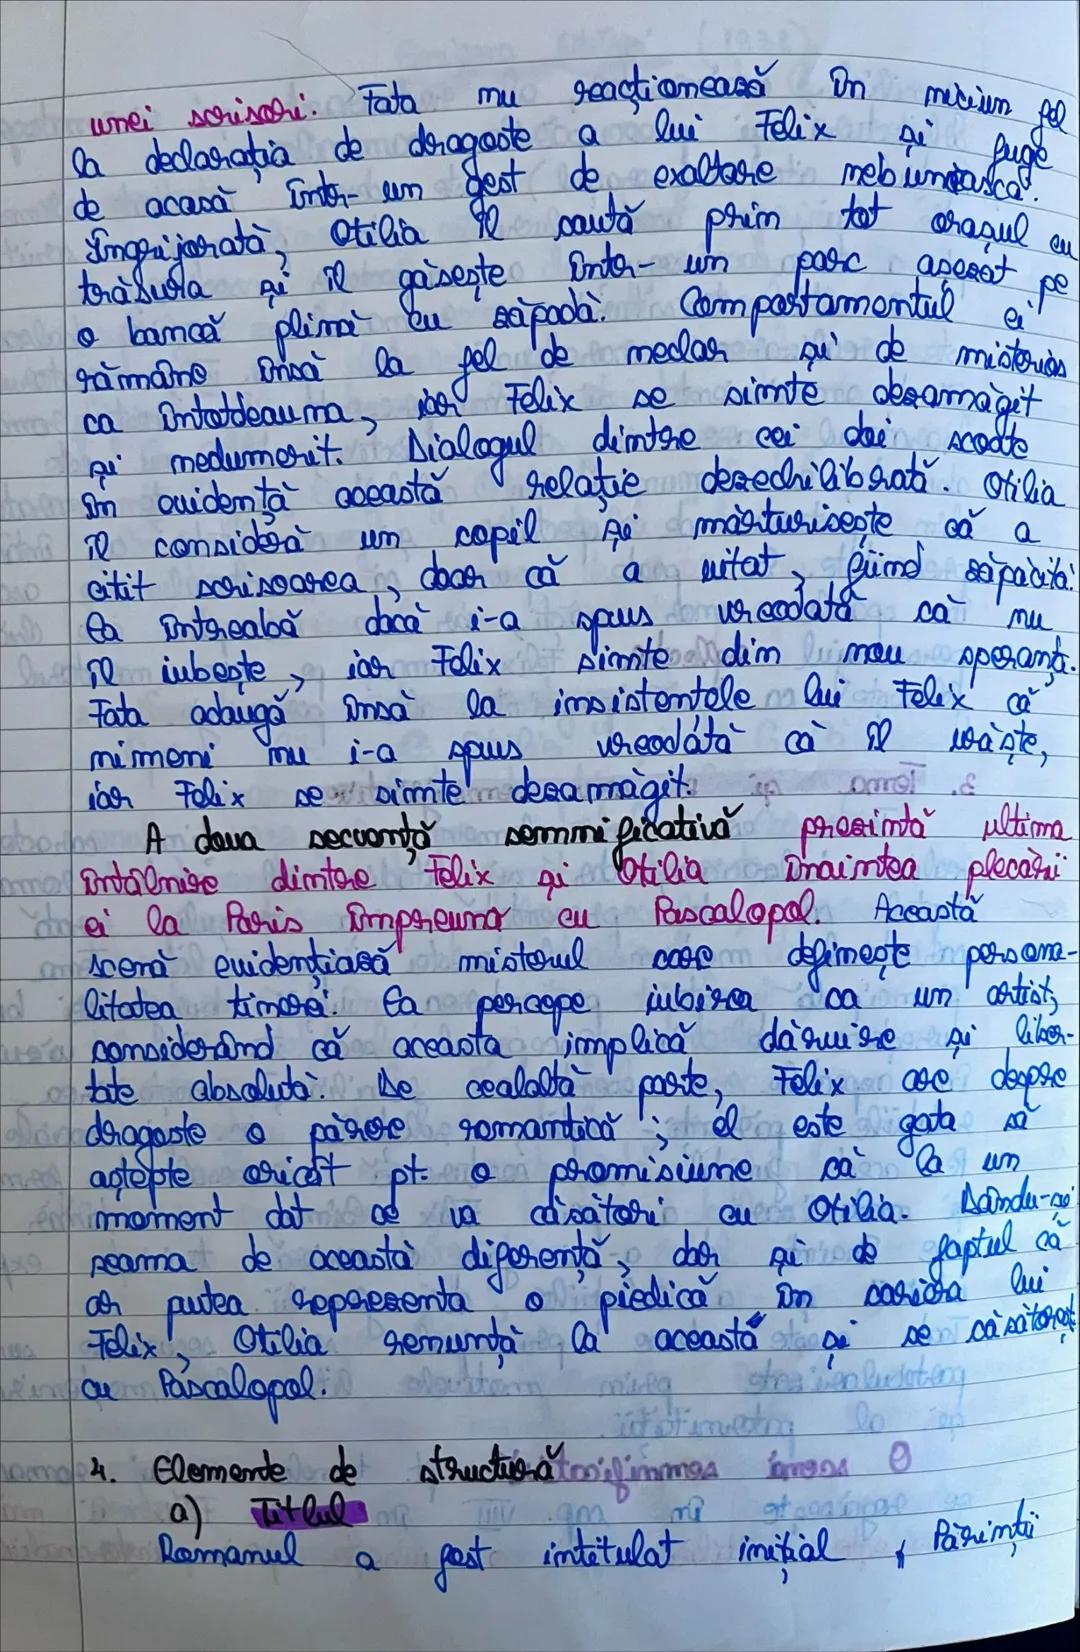 unei scrisori. Fata nu reacționează în niciun fel
la declarația de dragoste a lui Felix și fuge
de acasă într-un gest de exaltare nebunească.
Îngrijorată, Otilia îl caută prin tot orașul cu
trăsura și îl găsește într-un parc așezat pe
o bancă plină cu zăpadă. Comportamentul ei
rămâne însă la fel de neclar și de misterios
ca întotdeauna, iar Felix se simte dezamăgit
și nedumerit. Dialogul dintre cei doi scoate
în evidență această relație dezechilibrată. Otilia
îl consideră un copil și mărturisește că a
citit scrisoarea, doar că a uitat, fiind zăpăcită.
Ea întreabă dacă i-a spus vreodată că nu
îl iubește, iar Felix simte din nou speranț.
Fata adaugă însă la insistentele lui Felix că
nimeni nu i-a spus vreodată că îl urăște,
iar Felix se simte dezamăgit.
A doua secvență semnificativă prezintă ultima
întâlnire dintre Felix și Otilia înaintea plecării
ei la Paris împreună cu Pascalopol. Această
scenă evidențiază misterul care definește persona-
litatea tinerei. Ea percepe iubirea ca un artist,
considerând că aceasta implică dăruire și liber-
tate absolută. De cealaltă parte, Felix are despre
dragoste o părere romantică; el este gata să
aștepte oricât pt. o promisiune că la un
moment dat se va căsători cu Otilia. Dându-și
seama de această diferență, dar și de faptul că
ar putea reprezenta o piedică în cariera lui
Felix, Otilia renunță la această și se căsătorește
cu Pascalopol.
4. Elemente de structură
a) Titlul
Romanul a fost intitulat inițial „Părinții